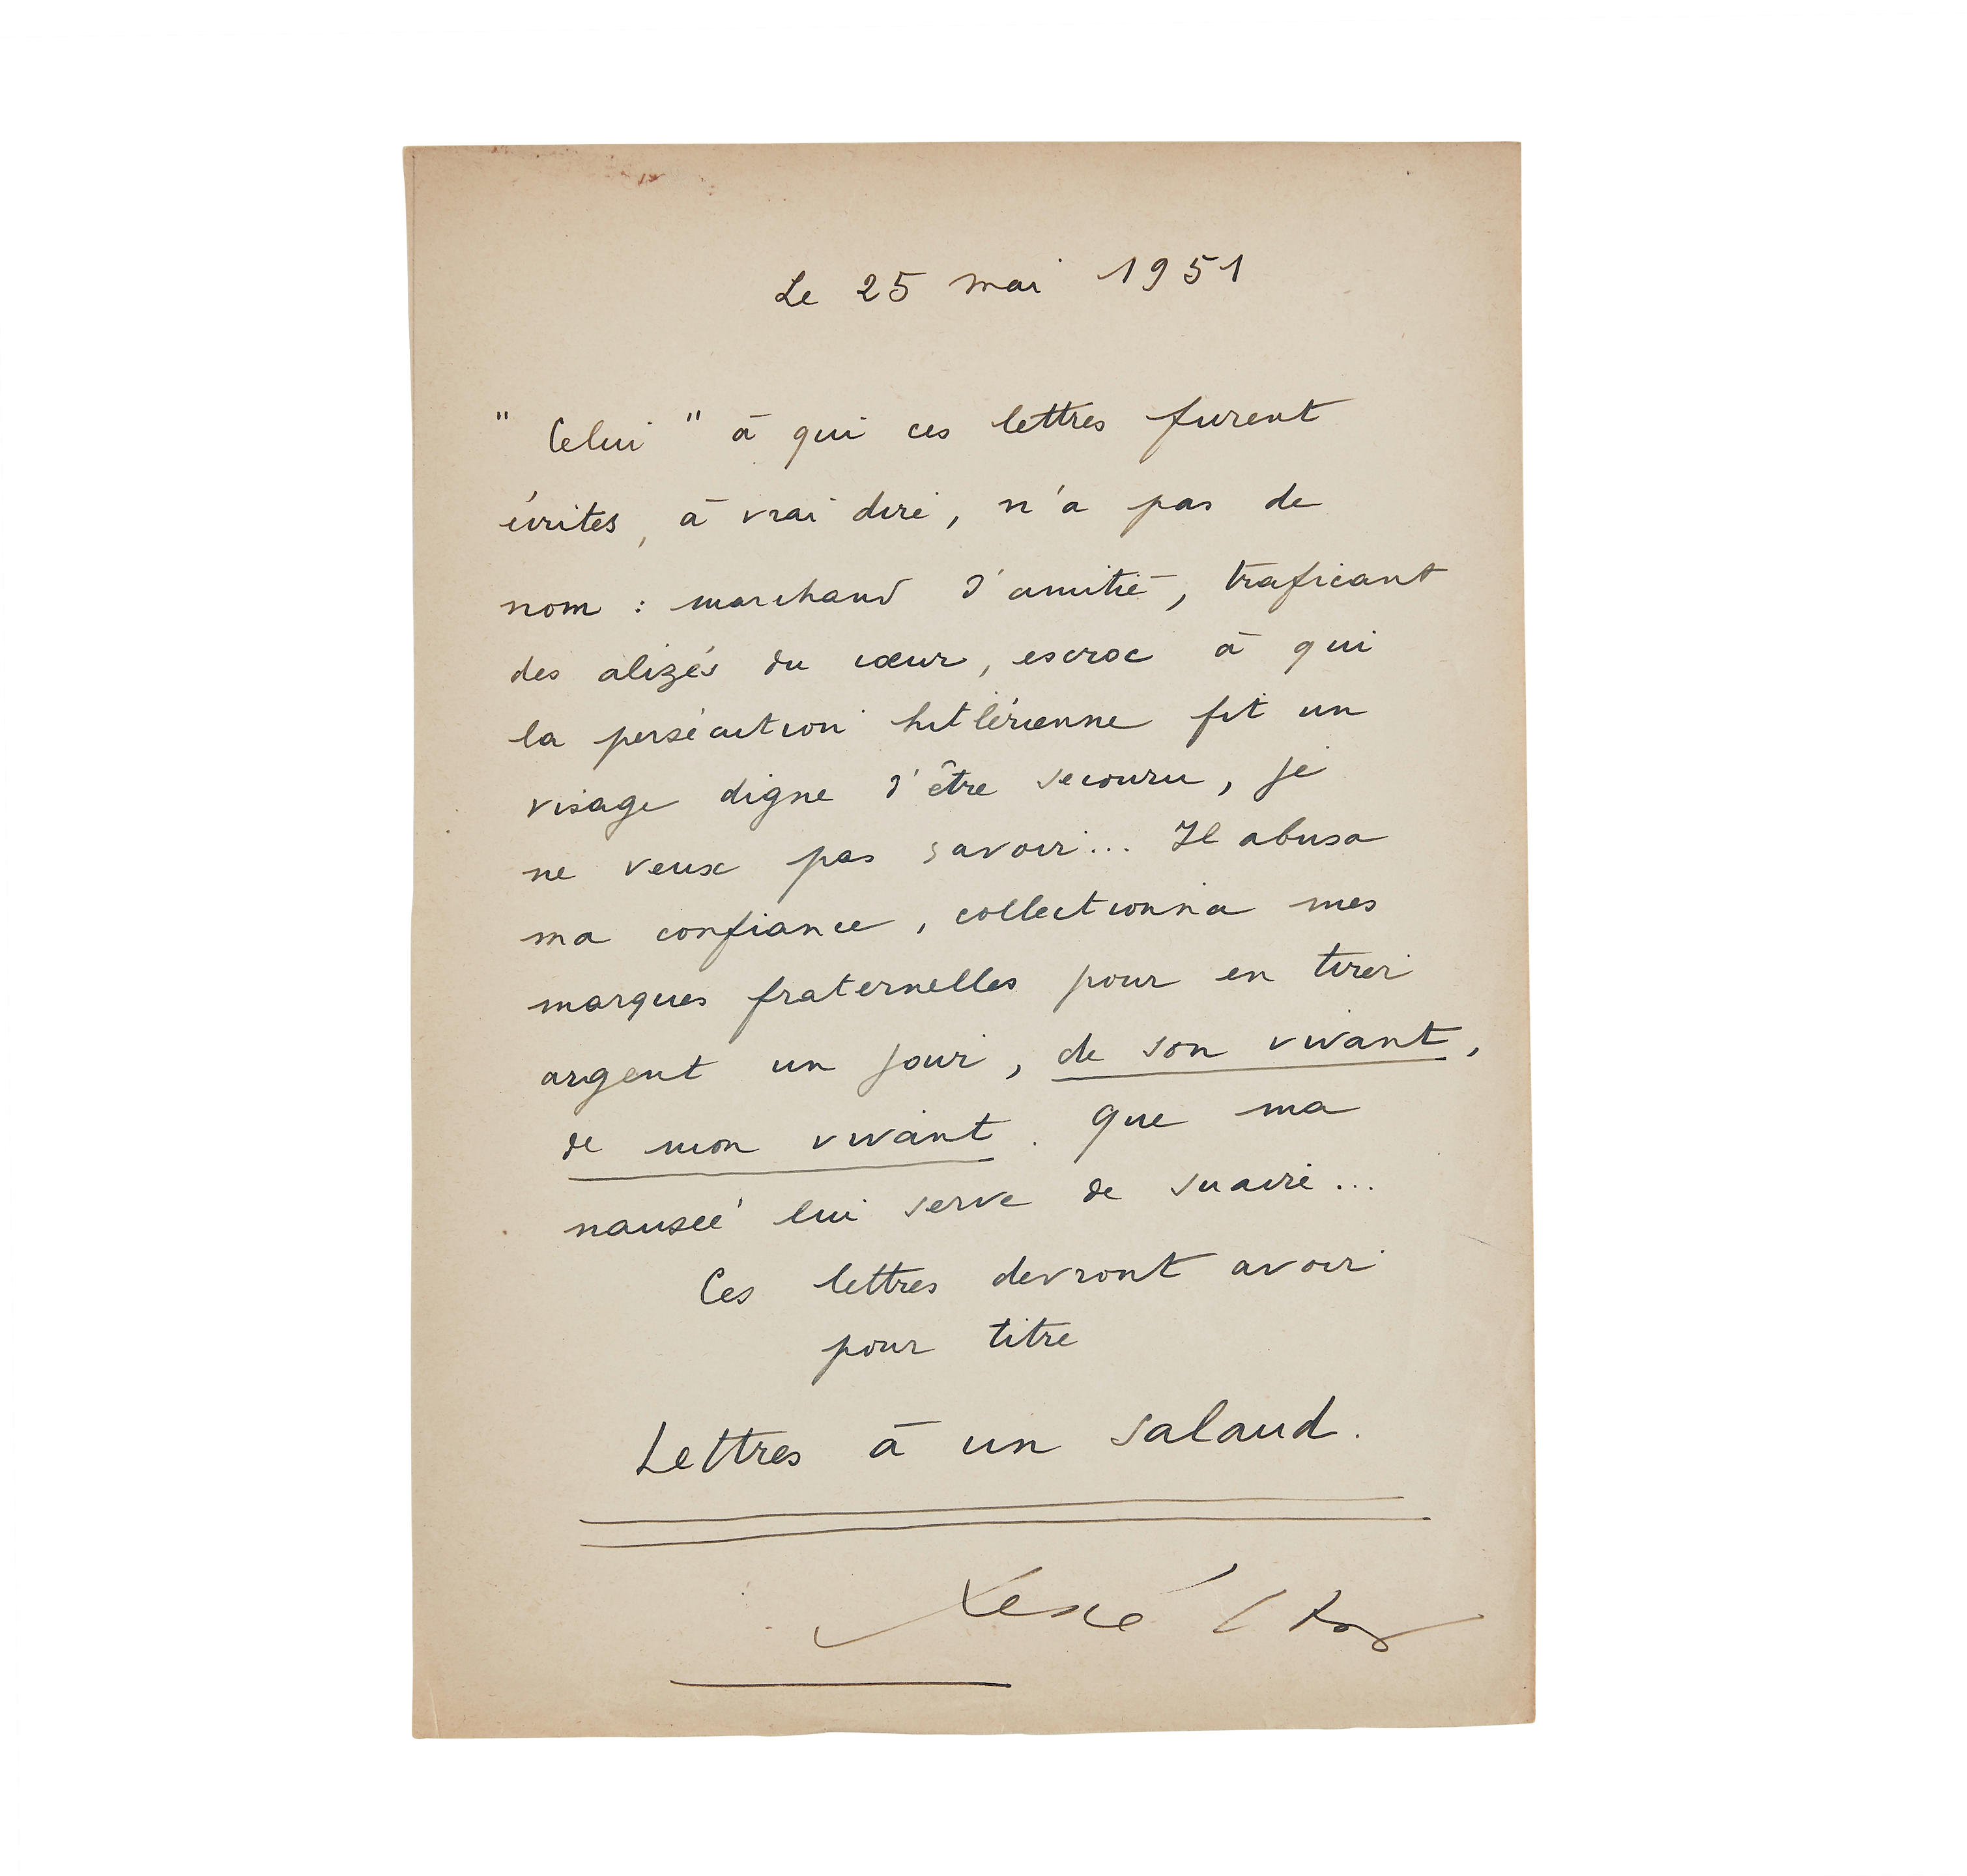 Le 25 mai 1951
" Celui " à qui ces lettres furent
écrites, à vrai dire, n'a pas de
nom : marchand d'amitié, traficant
des alizés du cœur, escroc à qui
la persécution hitlérienne fit un
visage digne d'être secouru, je
ne veux pas savoir... Il abusa
ma confiance, collectionna mes
marques fraternelles pour en tirer
argent un jour, de son vivant,
de mon vivant. Que ma
nausée lui serve de suaire...
Ces lettres devront avoir
pour titre
Lettres à un salaud.
René Char